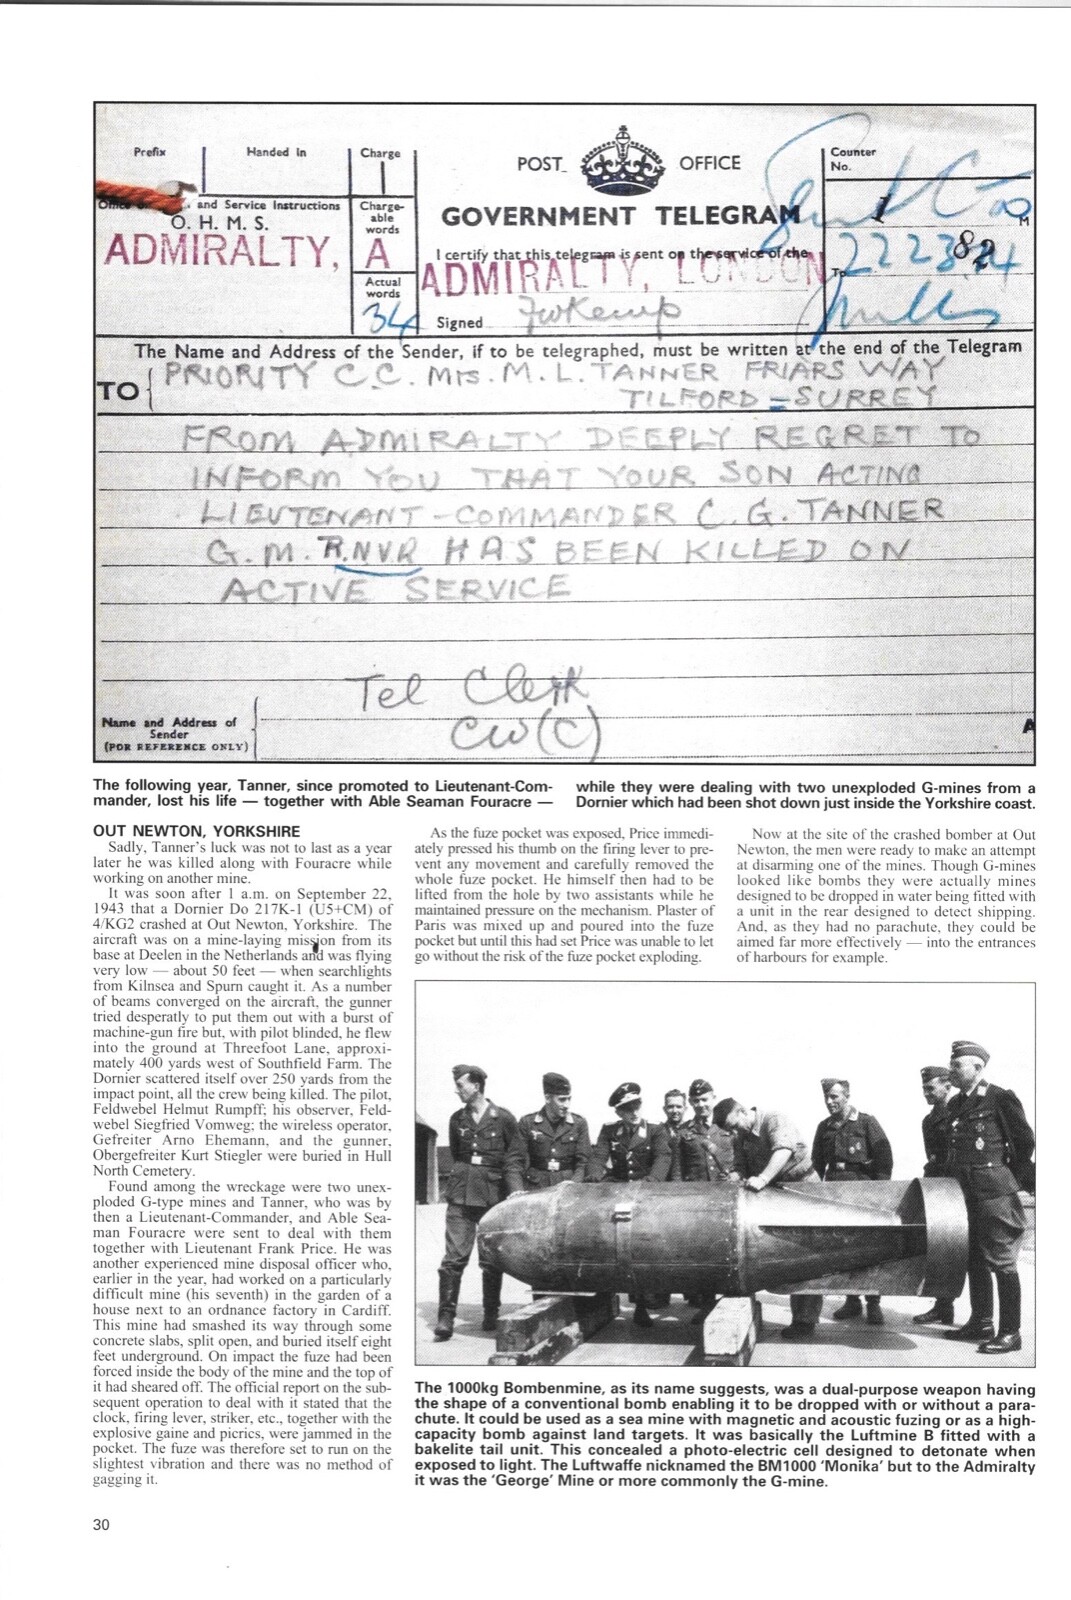 Prefix
Handed in
Charge
POST OFFICE
Counter
No.
and Service Instructions
O. H. M. S.
ADMIRALTY,
Charge-
able
words
A
GOVERNMENT TELEGRAM
1
I certify that this telegram is sent on the service of the
ADMIRALTY, LONDON
82
To
Actual
words
34
Signed
The Name and Address of the Sender, if to be telegraphed, must be written at the end of the Telegram
TO
PRIORITY C.C. Mrs. M. L. TANNER FRIARS WAY
TILFORD = SURREY
FROM ADMIRALTY DEEPLY REGRET TO
INFORM YOU THAT YOUR SON ACTING
LIEUTENANT-COMMANDER C. G. TANNER
G. M. R.N.V.R HAS BEEN KILLED ON
ACTIVE SERVICE
Tel Clerk
CW(C)
Name and Address of
Sender
(FOR REFERENCE ONLY)
A
The following year, Tanner, since promoted to Lieutenant-Com-
mander, lost his life — together with Able Seaman Fouracre —
while they were dealing with two unexploded G-mines from a
Dornier which had been shot down just inside the Yorkshire coast.
OUT NEWTON, YORKSHIRE
Sadly, Tanner's luck was not to last as a year
later he was killed along with Fouracre while
working on another mine.
It was soon after 1 a.m. on September 22,
1943 that a Dornier Do 217K-1 (U5+CM) of
4/KG2 crashed at Out Newton, Yorkshire. The
aircraft was on a mine-laying mission from its
base at Deelen in the Netherlands and was flying
very low — about 50 feet — when searchlights
from Kilnsea and Spurn caught it. As a number
of beams converged on the aircraft, the gunner
tried desperately to put them out with a burst of
machine-gun fire but, with pilot blinded, he flew
into the ground at Threefoot Lane, approxi-
mately 400 yards west of Southfield Farm. The
Dornier scattered itself over 250 yards from the
impact point, all the crew being killed. The pilot,
Feldwebel Helmut Rumpff; his observer, Feld-
webel Siegfried Vomweg; the wireless operator,
Gefreiter Arno Ehemann, and the gunner,
Obergefreiter Kurt Stiegler were buried in Hull
North Cemetery.
Found among the wreckage were two unex-
ploded G-type mines and Tanner, who was by
then a Lieutenant-Commander, and Able Sea-
man Fouracre were sent to deal with them
together with Lieutenant Frank Price. He was
another experienced mine disposal officer who,
earlier in the year, had worked on a particularly
difficult mine (his seventh) in the garden of a
house next to an ordnance factory in Cardiff.
This mine had smashed its way through some
concrete slabs, split open, and buried itself eight
feet underground. On impact the fuze had been
forced inside the body of the mine and the top of
it had sheared off. The official report on the sub-
sequent operation to deal with it stated that the
clock, firing lever, striker, etc., together with the
explosive gaine and picrics, were jammed in the
pocket. The fuze was therefore set to run on the
slightest vibration and there was no method of
gagging it.
As the fuze pocket was exposed, Price immedi-
ately pressed his thumb on the firing lever to pre-
vent any movement and carefully removed the
whole fuze pocket. He himself then had to be
lifted from the hole by two assistants while he
maintained pressure on the mechanism. Plaster of
Paris was mixed up and poured into the fuze
pocket but until this had set Price was unable to let
go without the risk of the fuze pocket exploding.
Now at the site of the crashed bomber at Out
Newton, the men were ready to make an attempt
at disarming one of the mines. Though G-mines
looked like bombs they were actually mines
designed to be dropped in water being fitted with
a unit in the rear designed to detect shipping.
And, as they had no parachute, they could be
aimed far more effectively — into the entrances
of harbours for example.
The 1000kg Bombenmine, as its name suggests, was a dual-purpose weapon having
the shape of a conventional bomb enabling it to be dropped with or without a para-
chute. It could be used as a sea mine with magnetic and acoustic fuzing or as a high-
capacity bomb against land targets. It was basically the Luftmine B fitted with a
bakelite tail unit. This concealed a photo-electric cell designed to detonate when
exposed to light. The Luftwaffe nicknamed the BM1000 'Monika' but to the Admiralty
it was the 'George' Mine or more commonly the G-mine.
30